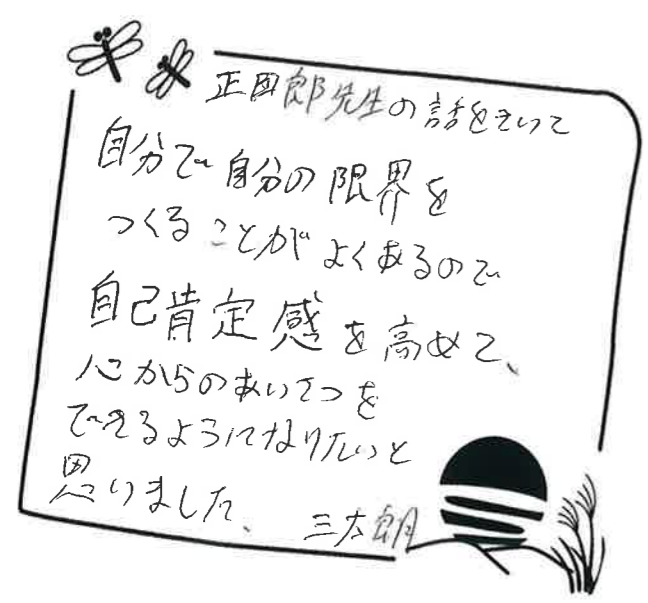 正四郎先生の話をきいて
自分で自分の限界を
つくることがよくあるので
自己肯定感を高めて、
心からのあいさつを
できるようになりたいと
思いました、
三太朗